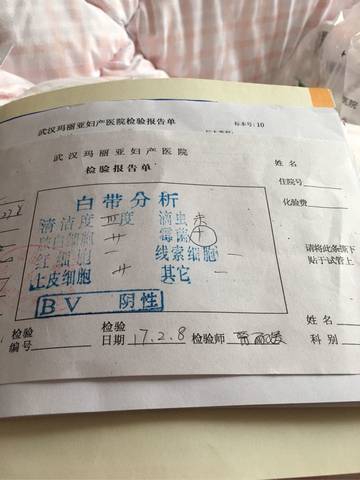 武汉玛丽亚妇产医院检验报告单 标本号: 10
武汉玛丽亚妇产医院
检验报告单
白带分析
清洁度 Ⅲ度 滴虫 未
白细胞 ++ 霉菌 +
红细胞 — 线索细胞 —
上皮细胞 ++ 其它 —
BV 阴性
检验编号
检验日期 17.2.8 检验师
姓名
住院号
化验费
请将此条撕下
贴于试管上
姓名
科别